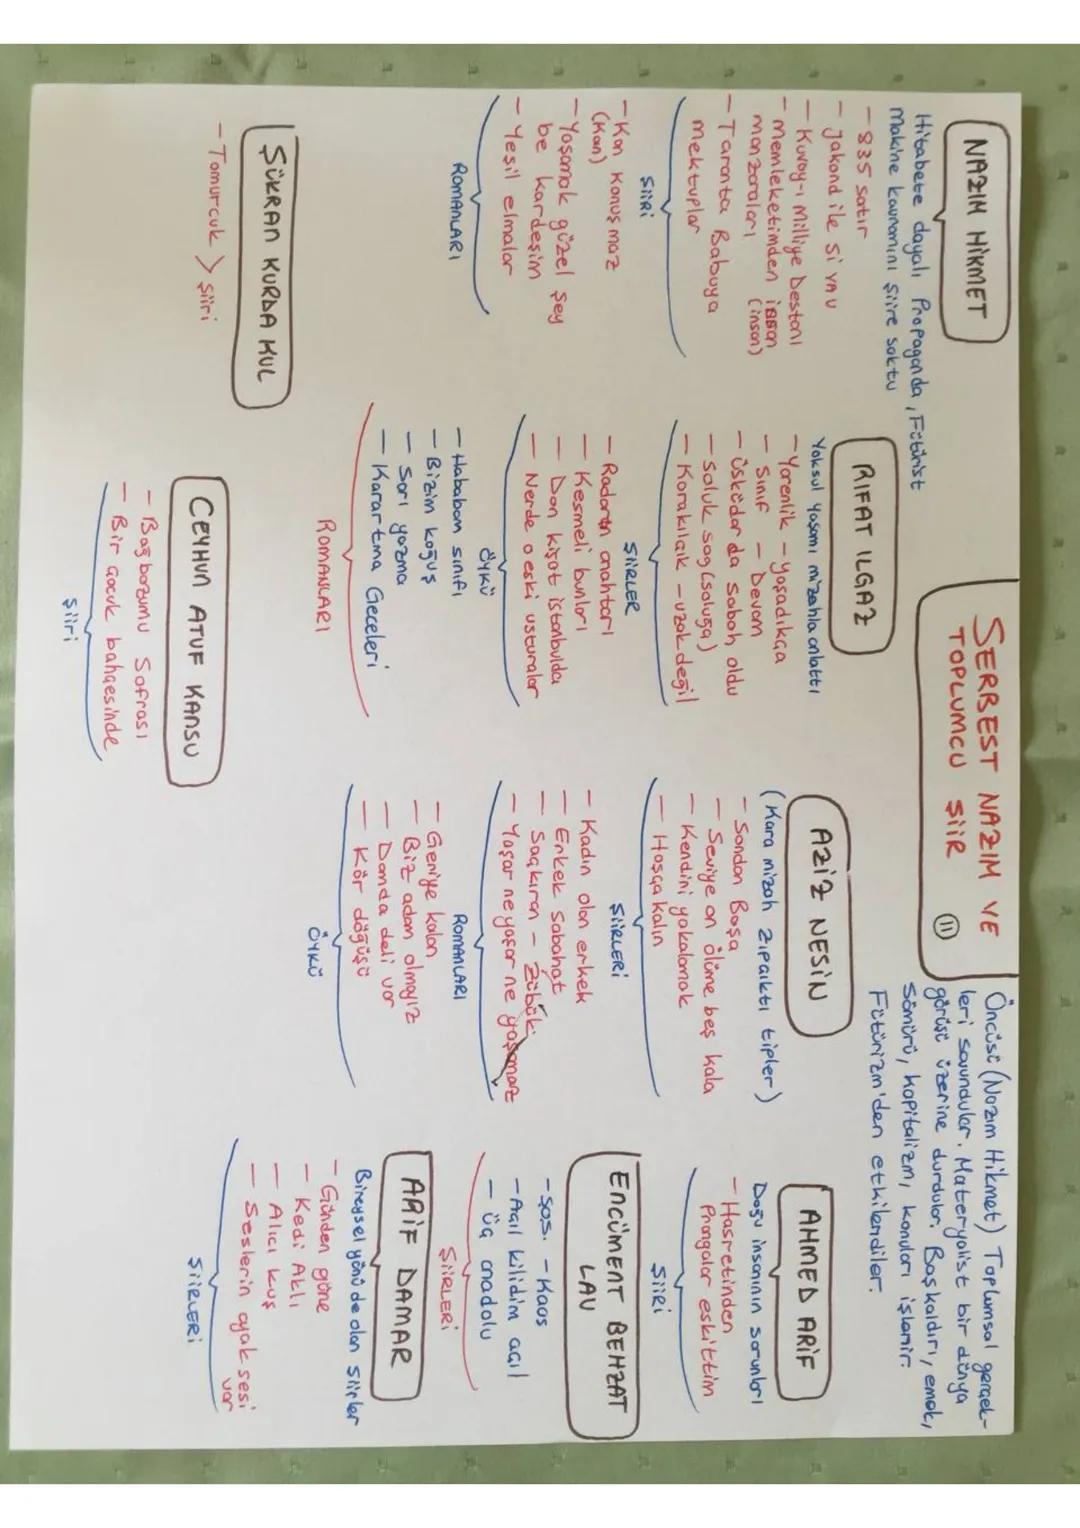 SERBEST NAZIM VE
TOPLUMCU ŞİİR
11
Öncüsü (Nazım Hikmet) Toplumsal gerçek-
leri savundular. Materyalist bir dünya
görüşü üzerine durdular. Başkaldırı, emek,
sömürü, kapitalizm, konuları işlenir.
Fütürizm'den etkilendiler.
NAZIM HİKMET
Hitabete dayalı Propaganda, Fütürist
makine kavramını şiire soktu
- 835 satır
- Jakond ile Si ya u
- Kuvay-ı Milliye Destanı
- Memleketimden insan
manzaraları (insan)
- Taranta Babuya
mektuplar
ŞİİRİ
- Kan Konuşmaz
(Kan)
- Yaşamak güzel şey
be kardeşim
- Yeşil elmalar
ROMANLARI
ŞÜKRAN KURDA KUL
- Tomurcuk > şiiri
RIFAT ILGAZ
Yoksul yaşamı mizahla anlattı
- Yarenlik - yaşadıkça
- Sınıf - Devam
- Üsküdar da Sabah oldu
- Soluk sog (soluğa)
- Karakılçık - uzak değil
ŞİİRLER
- Radarın anahtarı
- Kesmeli bunları
- Don kişot istanbulda
- Nerde o eski usturalar
ÖYKÜ
- Hababam sınıfı
- Bizim koğuş
- Sarı yazma
- Karartma Geceleri
ROMANLARI
CEYHUN ATUF KANSU
- Bağbozumu Sofrası
- Bir çocuk bahçesinde
şiiri
AZİZ NESİN
(Kara mizah zıpçıktı tipler)
- Sondan Başa
- Seviye on ölüme beş kala
- Kendini yakalamak
- Hoşça kalın
ŞİİRLERİ
- Kadın olan erkek
- Erkek Sabahat
- Saçkıran - Zübük
- Yaşar ne yaşar ne yaşamaz
ROMANLARI
- Geriye kalan
- Biz adam olmayız
- Damda deli var
- Kör döğüşü
ÖYKÜ
AHMED ARİF
Doğu insanının sorunları
- Hasretinden
Prangalar eskittim
ŞİİRİ
ERCÜMENT BEHZAT
LAV
- Şas. - Kaos
- Açıl kilidim açıl
- Üç anadolu
ŞİİRLERİ
ARİF DAMAR
Bireysel yönü de olan şiirler
- Günden güne
- Kedi Aklı
- Alıcı kuş
- Seslerin ayak sesi
var
ŞİİRLERİ